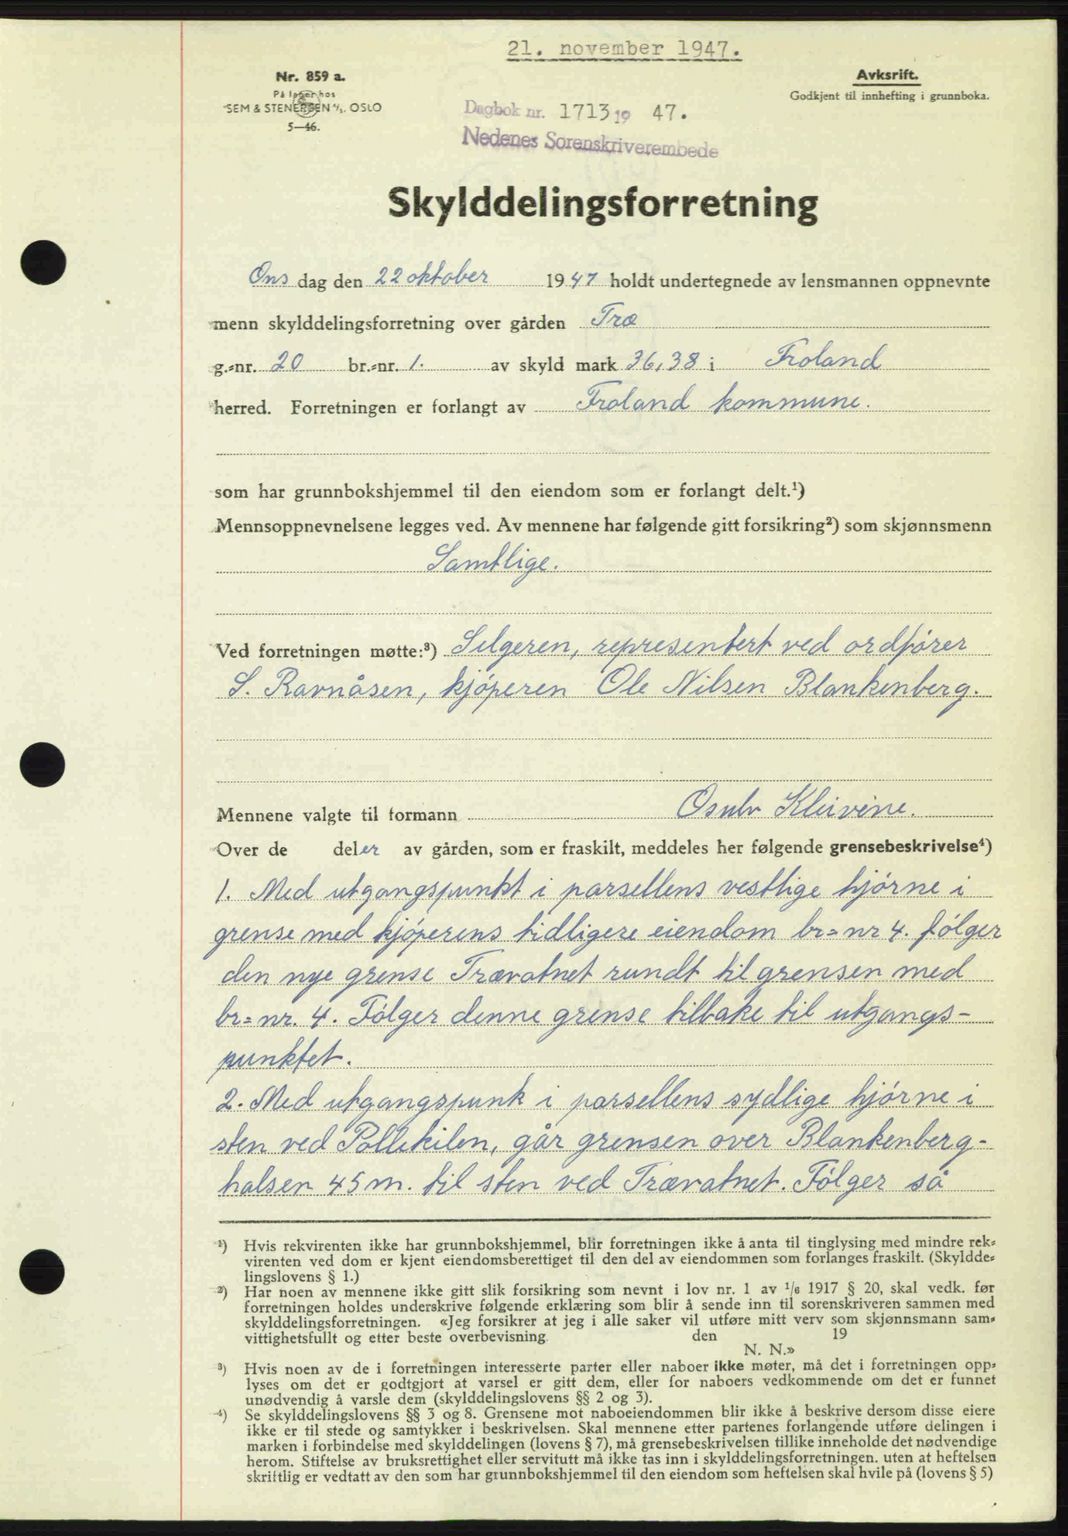 21. november 1947.
Nr. 859 a.
På lager hos
SEM & STENERSEN A/S. OSLO
5—46.
Avksrift.
Godkjent til innhefting i grunnboka.
Dagbok nr. 1713 19 47.
Nedenes Sorenskriverembede
Skylddelingsforretning
Ons dag den 22 oktober 1947 holdt undertegnede av lensmannen oppnevnte
menn skylddelingsforretning over gården Træ
g.-nr. 20 br.-nr. 1. av skyld mark 36,38 i Froland
herred. Forretningen er forlangt av Froland kommune.
som har grunnbokshjemmel til den eiendom som er forlangt delt.¹)
Mennsoppnevnelsene legges ved. Av mennene har følgende gitt forsikring²) som skjønnsmenn
Samtlige.
Ved forretningen møtte:³) Selgeren, representert ved ordfører
S. Ravnåsen, kjøperen Ole Nilsen Blankenberg.
Mennene valgte til formann Osulv Kleivene.
Over de deler av gården, som er fraskilt, meddeles her følgende grensebeskrivelse⁴)
1. Med utgangspunkt i parsellens vestlige hjørne i
grense med kjøperens tidligere eiendom br=nr 4. følger
den nye grense Trævatnet rundt til grensen med
br=nr. 4. Følger denne grense tilbake til utgangs-
punktet.
2. Med utgangspunk i parsellens sydlige hjørne i
sten ved Pollekilen, går grensen over Blankenberg-
halsen 45 m. til sten ved Trævatnet. Følger så
¹) Hvis rekvirenten ikke har grunnbokshjemmel, blir forretningen ikke å anta til tinglysing med mindre rek-
virenten ved dom er kjent eiendomsberettiget til den del av eiendommen som forlanges fraskilt. (Skyldde-
lingslovens § 1.)
²) Har noen av mennene ikke gitt slik forsikring som nevnt i lov nr. 1 av 1/6 1917 § 20, skal vedk. før
forretningen holdes underskrive følgende erklæring som blir å sende inn til sorenskriveren sammen med
skylddelingsforretningen. «Jeg forsikrer at jeg i alle saker vil utføre mitt verv som skjønnsmann sam-
vittighetsfullt og etter beste overbevisning den 19
N. N.»
³) Hvis noen av de i forretningen interesserte parter eller naboer ikke møter, må det i forretningen opp-
lyses om det er godtgjort at varsel er gitt dem, eller for naboers vedkommende om det er funnet
unødvendig å varsle dem (skylddelingslovens §§ 2 og 3).
⁴) Se skylddelingslovens §§ 3 og 8. Grensene mot naboeiendommen blir ikke å beskrive dersom disse eiere
ikke er til stede og samtykker i beskrivelsen. Skal mennene etter partenes forlangende utføre delingen i
marken i forbindelse med skylddelingen (lovens § 7), må grensebeskrivelsen tillike inneholde det nødvendige
herom. Stiftelse av bruksrettighet eller servitutt må ikke tas inn i skylddelingsforretningen. uten at heftelsen
skriftlig er vedtatt av den som har grunnbokshjemmel til den eiendom som heftelsen skal hvile på (lovens § 5)